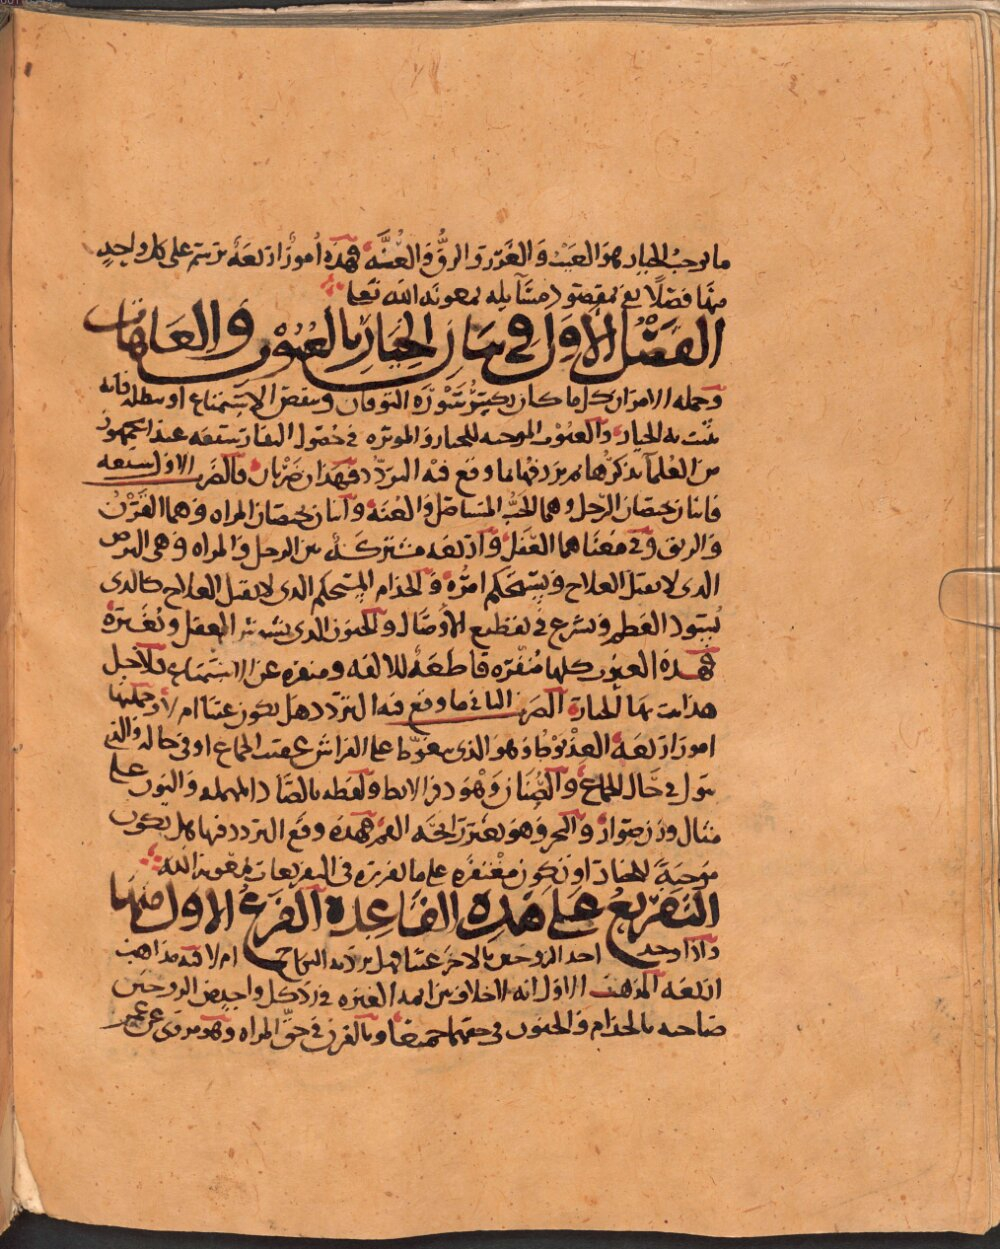 ما يوجب الخيار هو العيب والغرر والرق والعنة فهذه أمور أربعة نرسم على كل واحد
منها فصلا يفي بمقصود مسائله بمعونة الله تعالى
الفصل الأول في بيان الخيار بالعيوب والعاهات
وجملة الأمر ان كل ما كان يكسر سورة التوقان وينقص الاستمتاع او يبطله فانه
يثبت به الخيار والعيوب الموجبة للخيار والموثرة في حصول النفار تسعة عند الجمهور
من العلماء نذكرها ثم نردفها ما وقع فيه التردد فهذان ضربان فالضرب الاول تسعة
فاثنان يختصان الرجل وهما الجب المستأصل والعنة واثنان يختصان المراه وهما القرن
والرتق وفي معناهما العفل وأربعة مشتركة بين الرجل والمراه وهي البرص
الذي لا يقبل العلاج ويستحكم امره والجذام المستحكم الذي لا يقبل العلاج كالذي
يسود العظم ويشرع في تقطيع الأوصال والجنون الذي يشوش العقل ويغيره
فهذه العيوب كلها منفرة قاطعة للالفة ومنفره عن الاستمتاع فلأجل
هذا يثبت بها الخيار الضرب الثاني ما وقع فيه التردد هل يكون عيبا ام لا وجملتها
امور اربعة العذيوط وهو الذي يغوط على الفراش عقيب الجماع او في حاله والتي
تبول في حال الجماع والصنان وهو دفر الابط ولفظه بالصاد المهملة والنون على
مثال وزن صوار والبخر وهو تغير رائحة الفم فهذه وقع التردد فيها هل يكون
موجبة للخيار او تكون مغتفره على ما نقرره في التفريعات بمعونة الله
التفريع على هذه القاعدة الفرع الاول منها
واذا وجد احد الزوجين بالاخر عيبا فهل يرد به النكاح ام لا فيه مذاهب
اربعة المذهب الاول انه لا خلاف بين ائمة العترة في رد كل واحد من الزوجين
صاحبه بالجذام والجنون في حقهما جميعا وبالقرن في حق المراه وهو مروي عن عمر